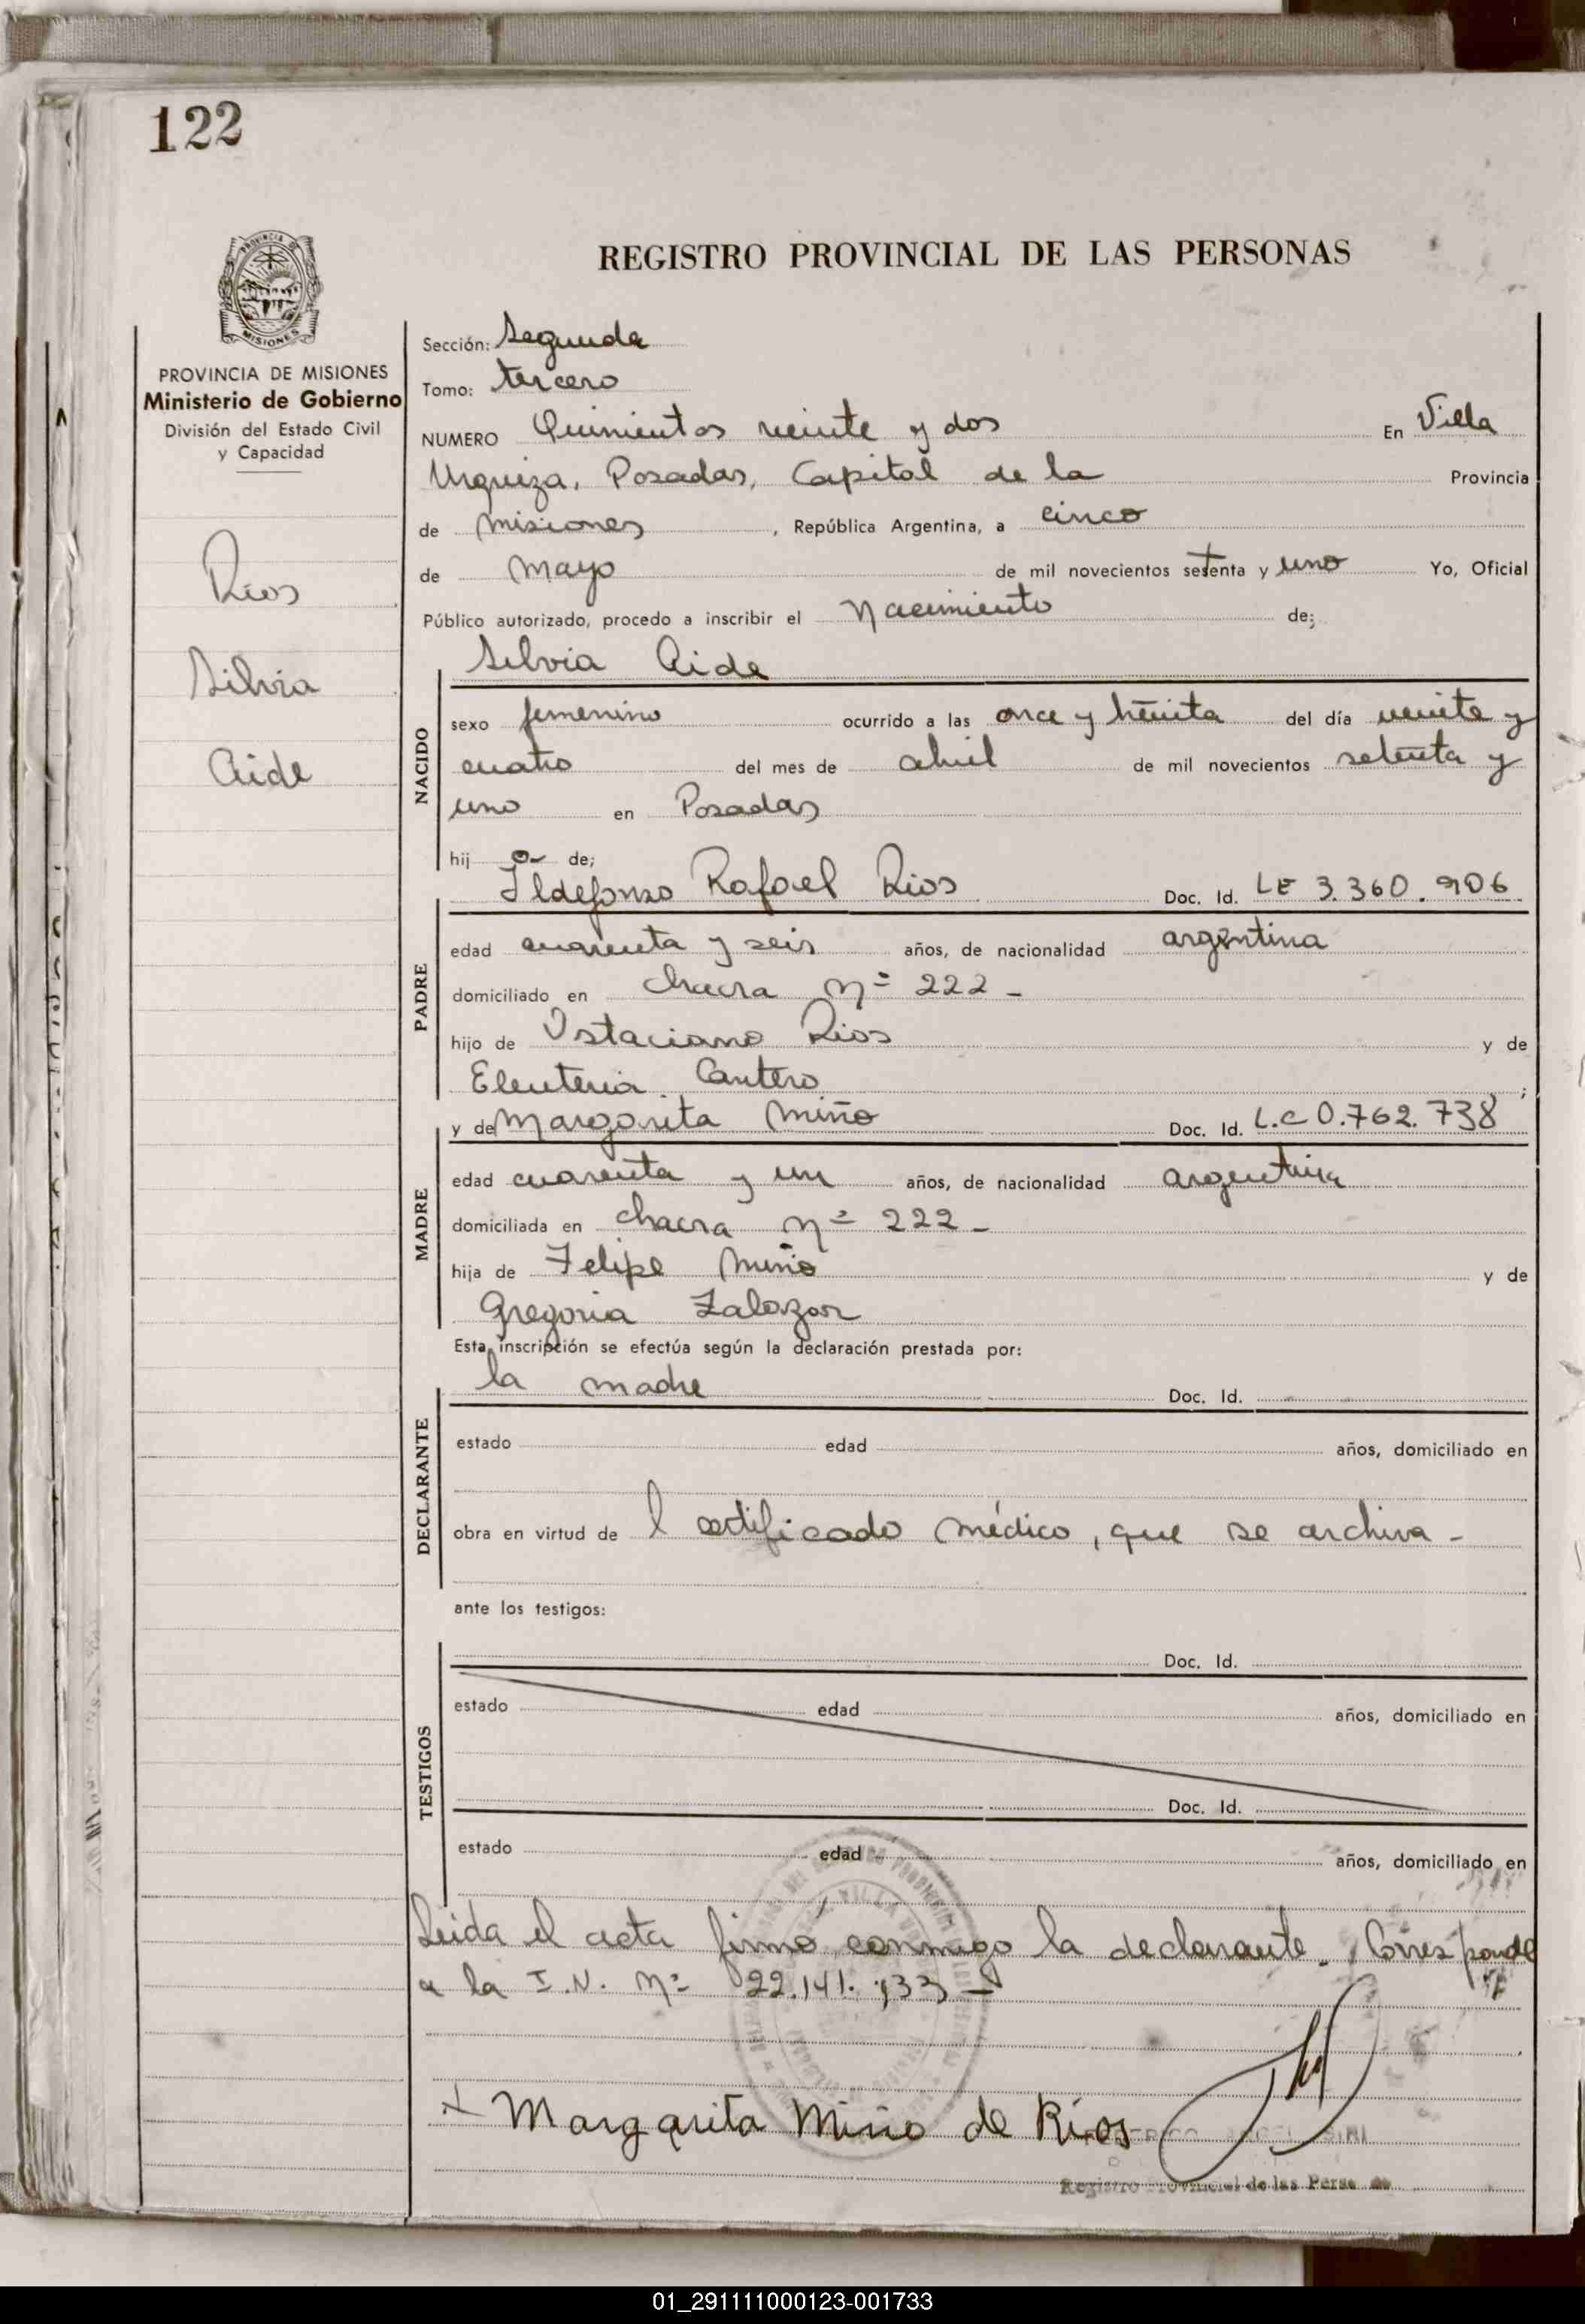 122
PROVINCIA DE MISIONES
Ministerio de Gobierno
División del Estado Civil
y Capacidad
Rios
Silvia
Aide
REGISTRO PROVINCIAL DE LAS PERSONAS
Sección: Segunda
Tomo: tercero
NUMERO Quinientos veinte y dos En Villa
Urquiza, Posadas, Capital de la Provincia
de Misiones, República Argentina, a cinco
de mayo de mil novecientos setenta y uno Yo, Oficial
Público autorizado, procedo a inscribir el Nacimiento de;
Silvia Aide
NACIDO
sexo femenino ocurrido a las once y treinta del día veinte y
cuatro del mes de abril de mil novecientos setenta y
uno en Posadas
hij a de;
Ildefonso Rafael Rios Doc. Id. LE 3.360.906
PADRE
edad cuarenta y seis años, de nacionalidad argentina
domiciliado en chacra n= 222 -
hijo de Ostaciano Rios y de
Eleuteria Cantero;
y de Margarita Miño Doc. Id. L.C 0.762.738
MADRE
edad cuarenta y un años, de nacionalidad argentina
domiciliada en chacra n= 222 -
hija de Felipe Miño y de
Gregoria Zalazar
Esta inscripción se efectúa según la declaración prestada por:
la madre Doc. Id.
DECLARANTE
estado edad años, domiciliado en
obra en virtud de l certificado médico, que se archiva -
ante los testigos:
Doc. Id.
TESTIGOS
estado edad años, domiciliado en
Doc. Id.
estado edad años, domiciliado en
Leida el acta firmó conmigo la declarante. Corresponde
a la I.N. N= 22.141.
x Margarita Miño de Ríos
Registro Provincial de las Perso
01_291111000123-001733